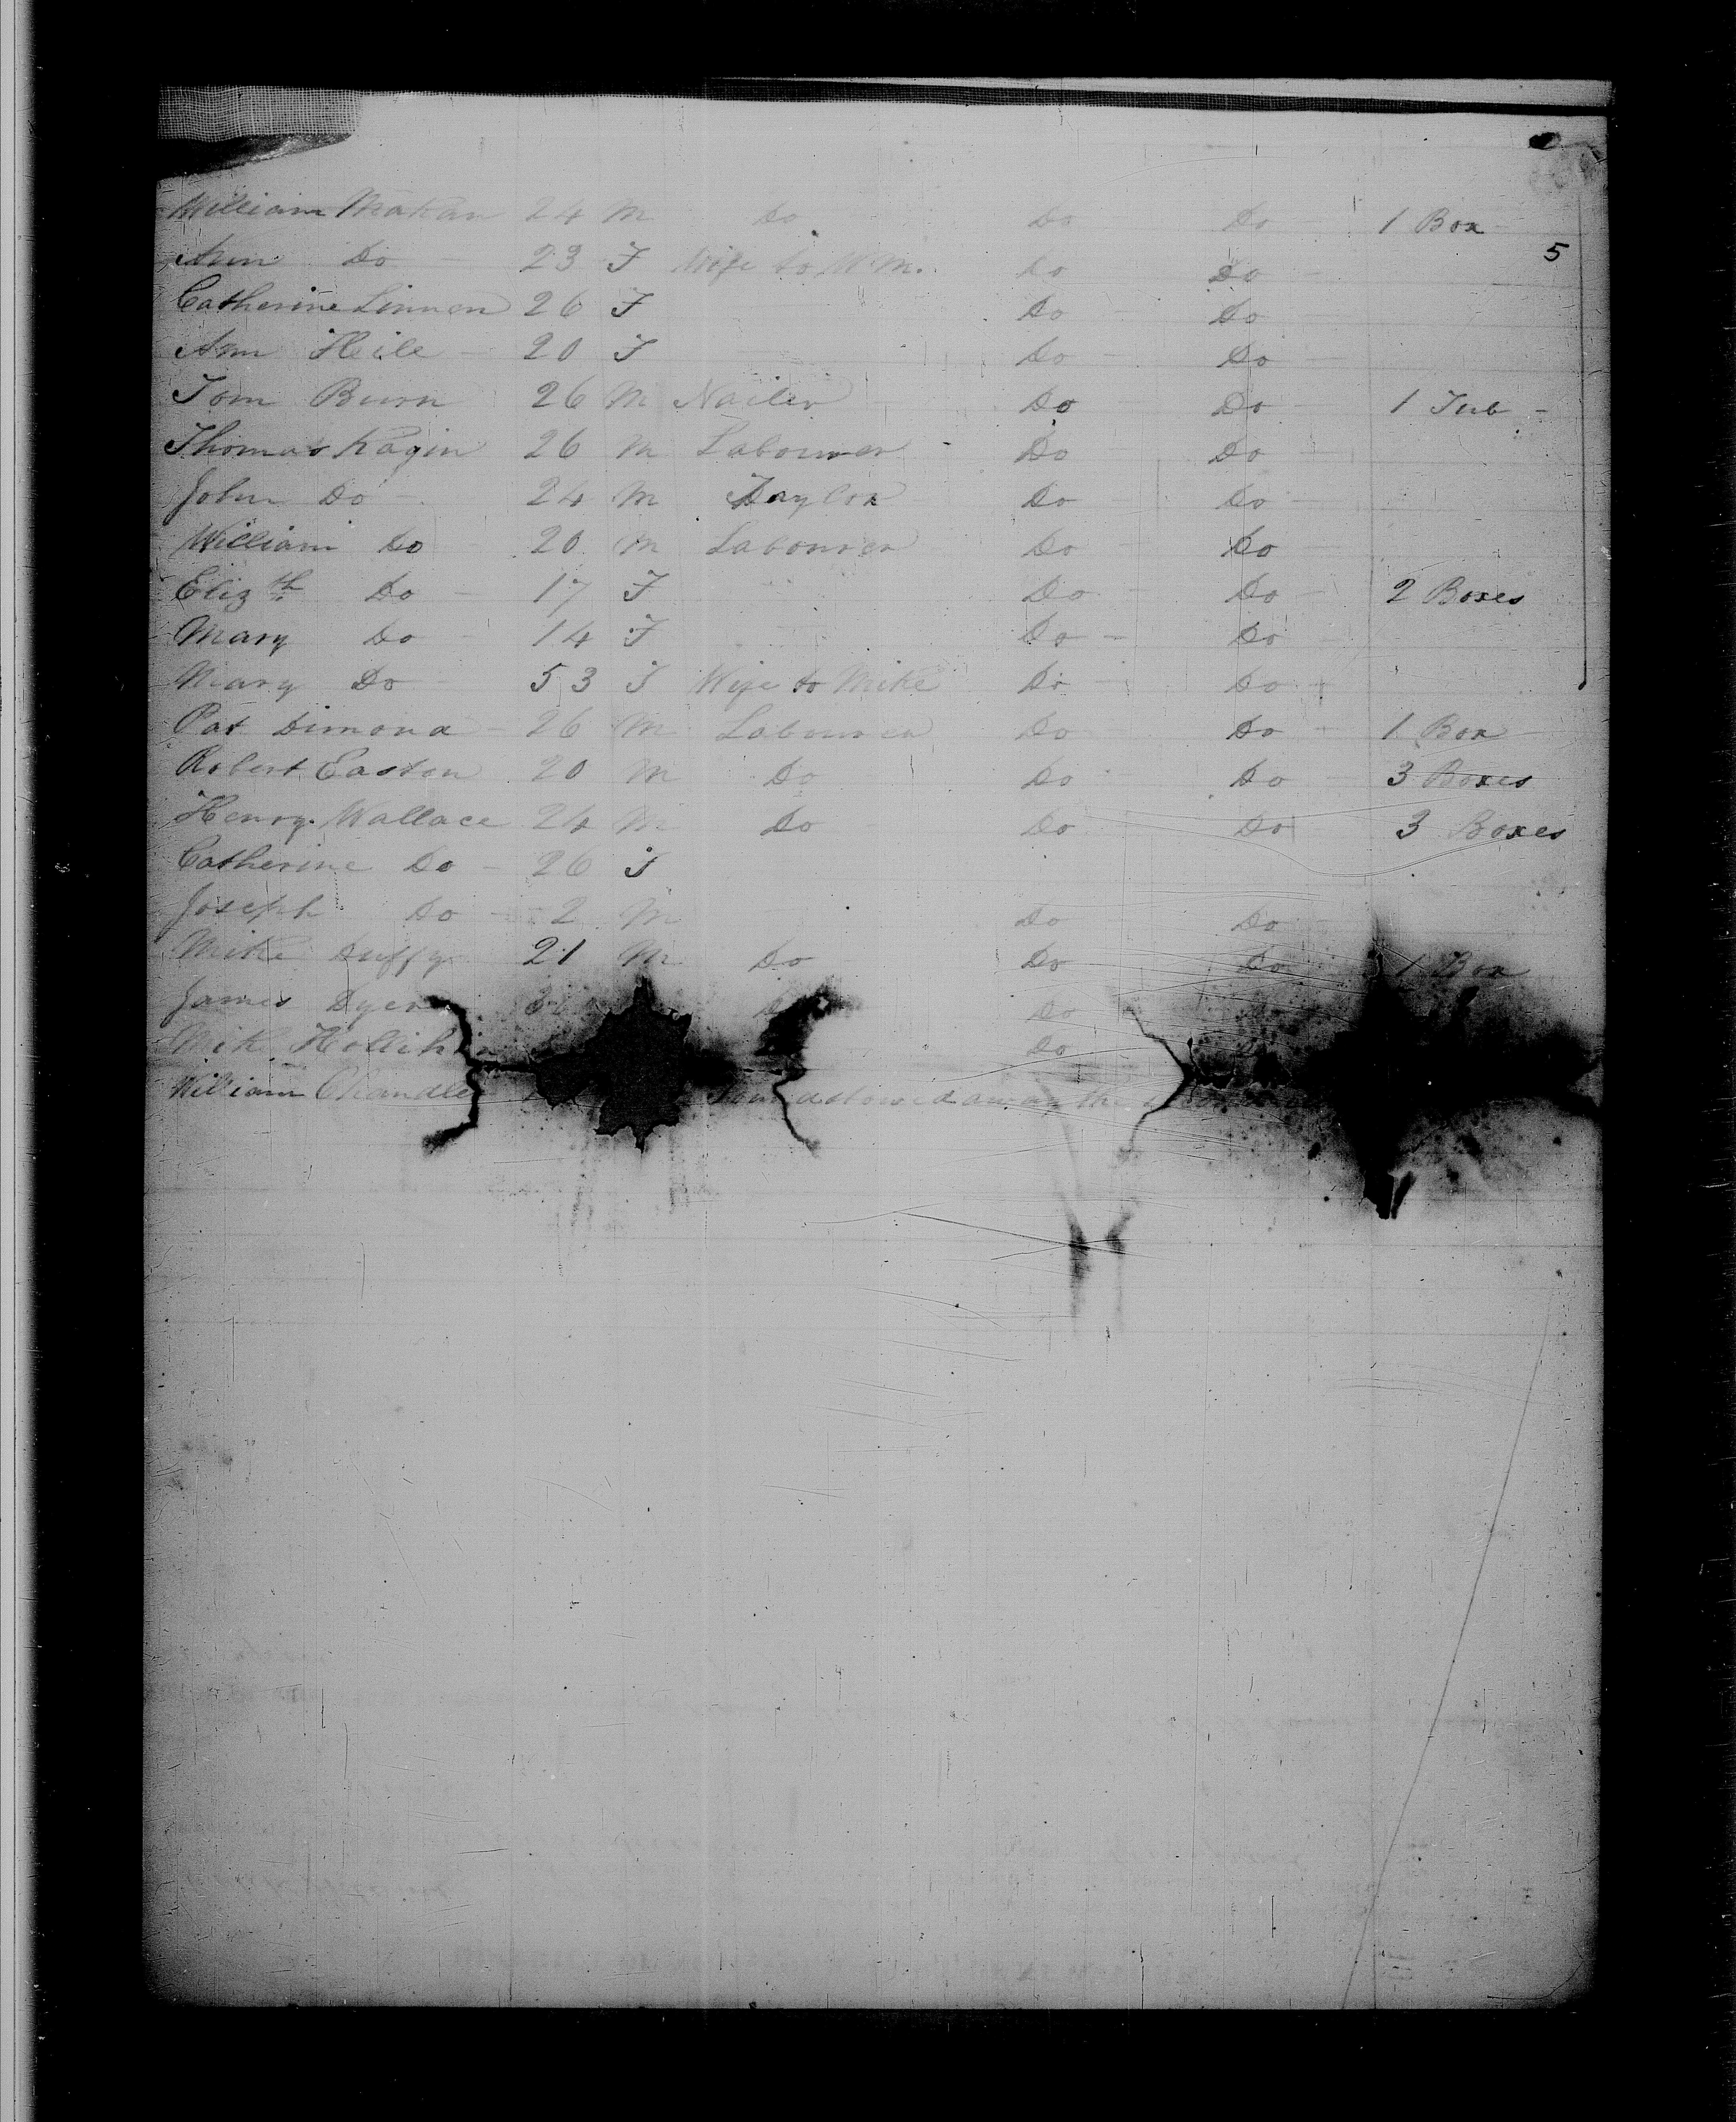 William Mahan 24 M Do Do Do 1 Box
5
Ann Do 23 F Wife to Wm. Do Do
Catherine Linnen 26 F Do Do
Ann Heile 20 F Do Do
Tom Burn 26 M Nailer Do Do 1 Tub
Thomas Kagin 26 M Labourer Do Do
John Do 24 M Taylor Do Do
William Do 20 M Labourer Do Do
Elizth Do 17 F Do Do 2 Boxes
Mary Do 14 F Do Do
Mary Do 53 F Wife to Mike Do Do
Pat Dimond 26 M Labourer Do Do 1 Box
Robert Easton 20 M Do Do Do 3 Boxes
Henry Wallace 24 M Do Do Do 3 Boxes
Catherine Do 26 F
Joseph Do 2 M Do Do
Mike Duffy 21 M Do Do Do 1 Box
James Dyer Do
Mike Do
William Chandle stowed away the